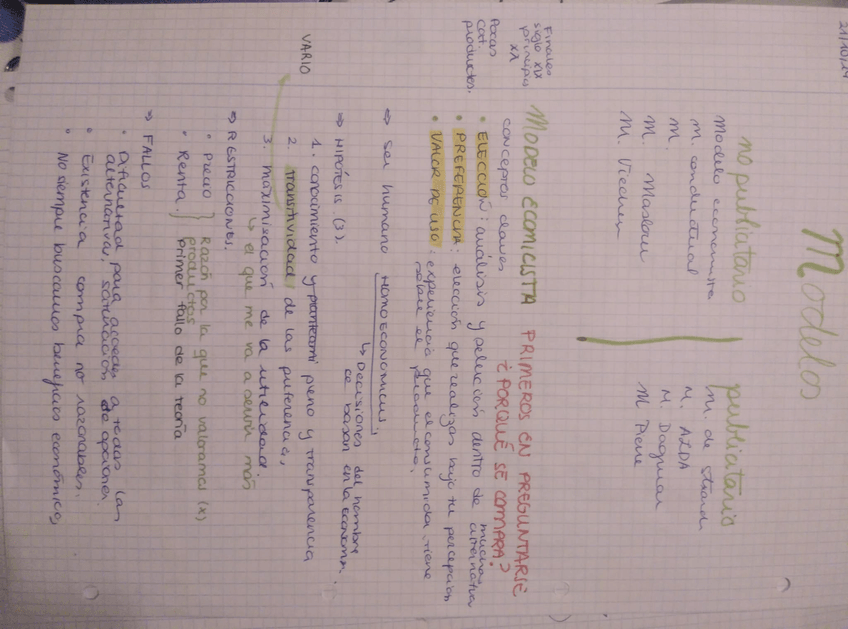 21/10/24
Modelos
no publicitario
Modelo economista
M. conductual
M.
M. Maslow
M.
publicitario
M. de
M. AIDA
M. Dagmar
M.
Finales
siglo XIX
principio
XX
Pocas
cat.
productos.
MODELO ECONICISTA PRIMEROS EN PREGUNTARSE
¿PORQUÉ SE COMPRA?
conceptos claves
• ELECCIÓN: análisis y selección dentro de muchas alternativa
• PREFERENCIA: elección que realizas bajo tu percepción
• VALOR DE USO: experiencia que el consumidor tiene
sobre el producto.
⇒ Ser humano HOMOECONOMICUS,
↳ Decisiones del hombre
se basan en la economía.
⇒ HIPÓTESIS (3).
1. conocimiento y pleno y transparencia
2. transitividad de las preferencias
VARIO
3. maximización de la utilidad
↳ el que me va a servir más
⇒ RESTRICCIONES.
• Precio } Razón por la que no valoramos (x)
productos
• Renta. } Primer fallo de la teoría
⇒ FALLOS
• Dificultad para acceder a todas las
alternativa, de opciones.
• Existencia compra no razonables.
• No siempre buscamos beneficios económicos,